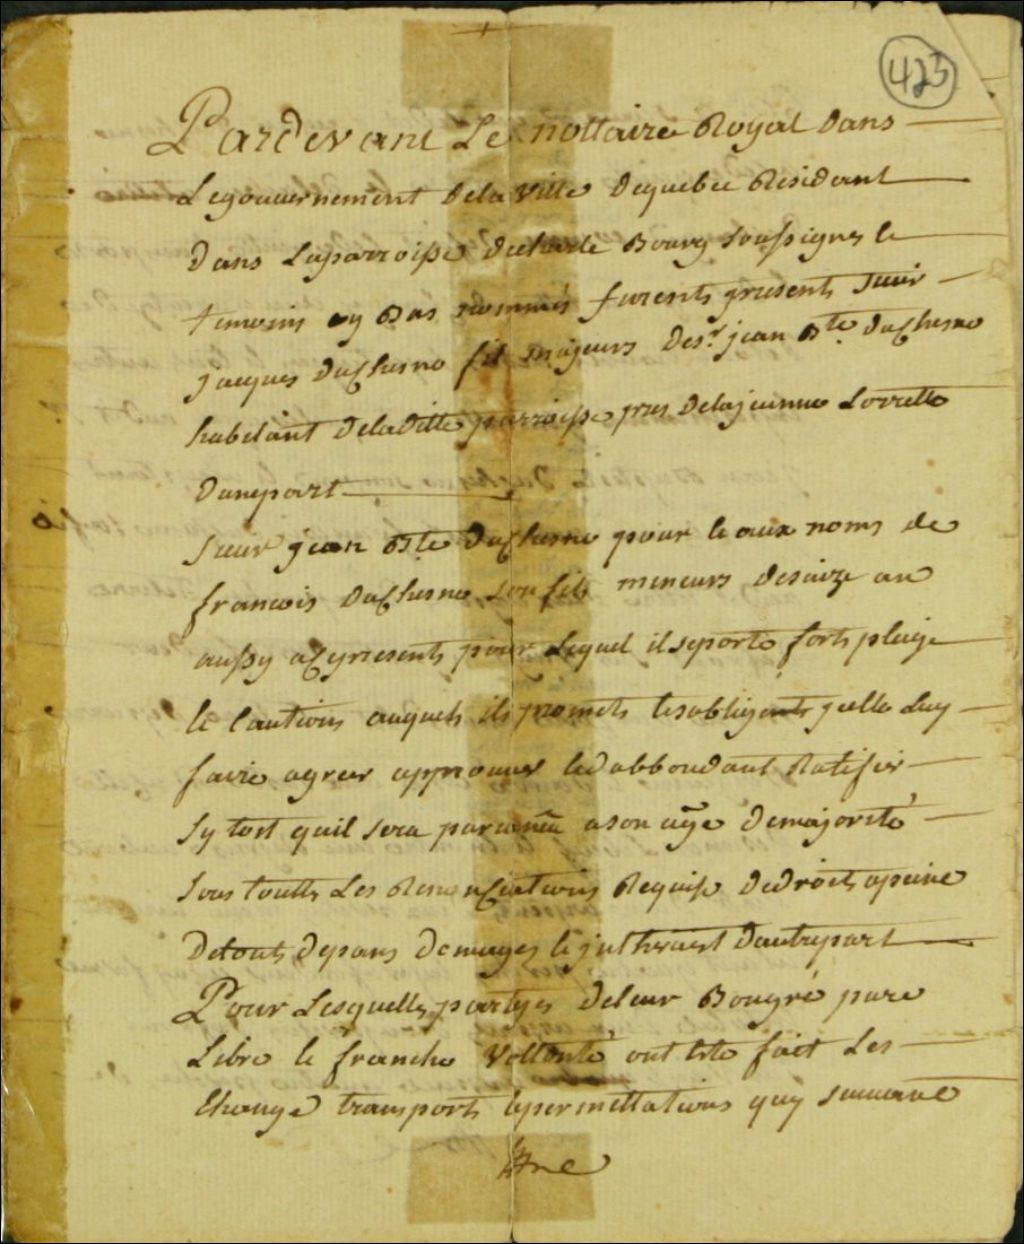 423
Pardevant Le nottaire Royal dans
Le gouvernement dela Ville dequebec Residant
dans Laparroisse decharle Bourg soussignes le
temoins cy Bas nommés furents presents sieur
jacques duchesne fils majeurs des.r jean B.te duchesne
habitant deladitte parroisse pres delajeunne Lorrette
dunepart
sieur jean Bte duchesne pour le aux noms de
francois duchesne son fils mineurs deseize an
aussy acy presents pour Lequel il seporte forts pleige
le Cautions auquels ils promets lesobligents
faire agreer approuver ledabbondant Ratifier
sy tost quil sera parvenu a son age demajorité
sous toutts Les Renonciations Requise dedroits apeine
detouts depans domages le jnthersest dautrepart
Pour Lesquelles partyes deleur Bongré pure
Libre le franche Vollonté ont este fait Les
Echange transports lepermuttations quy suivent